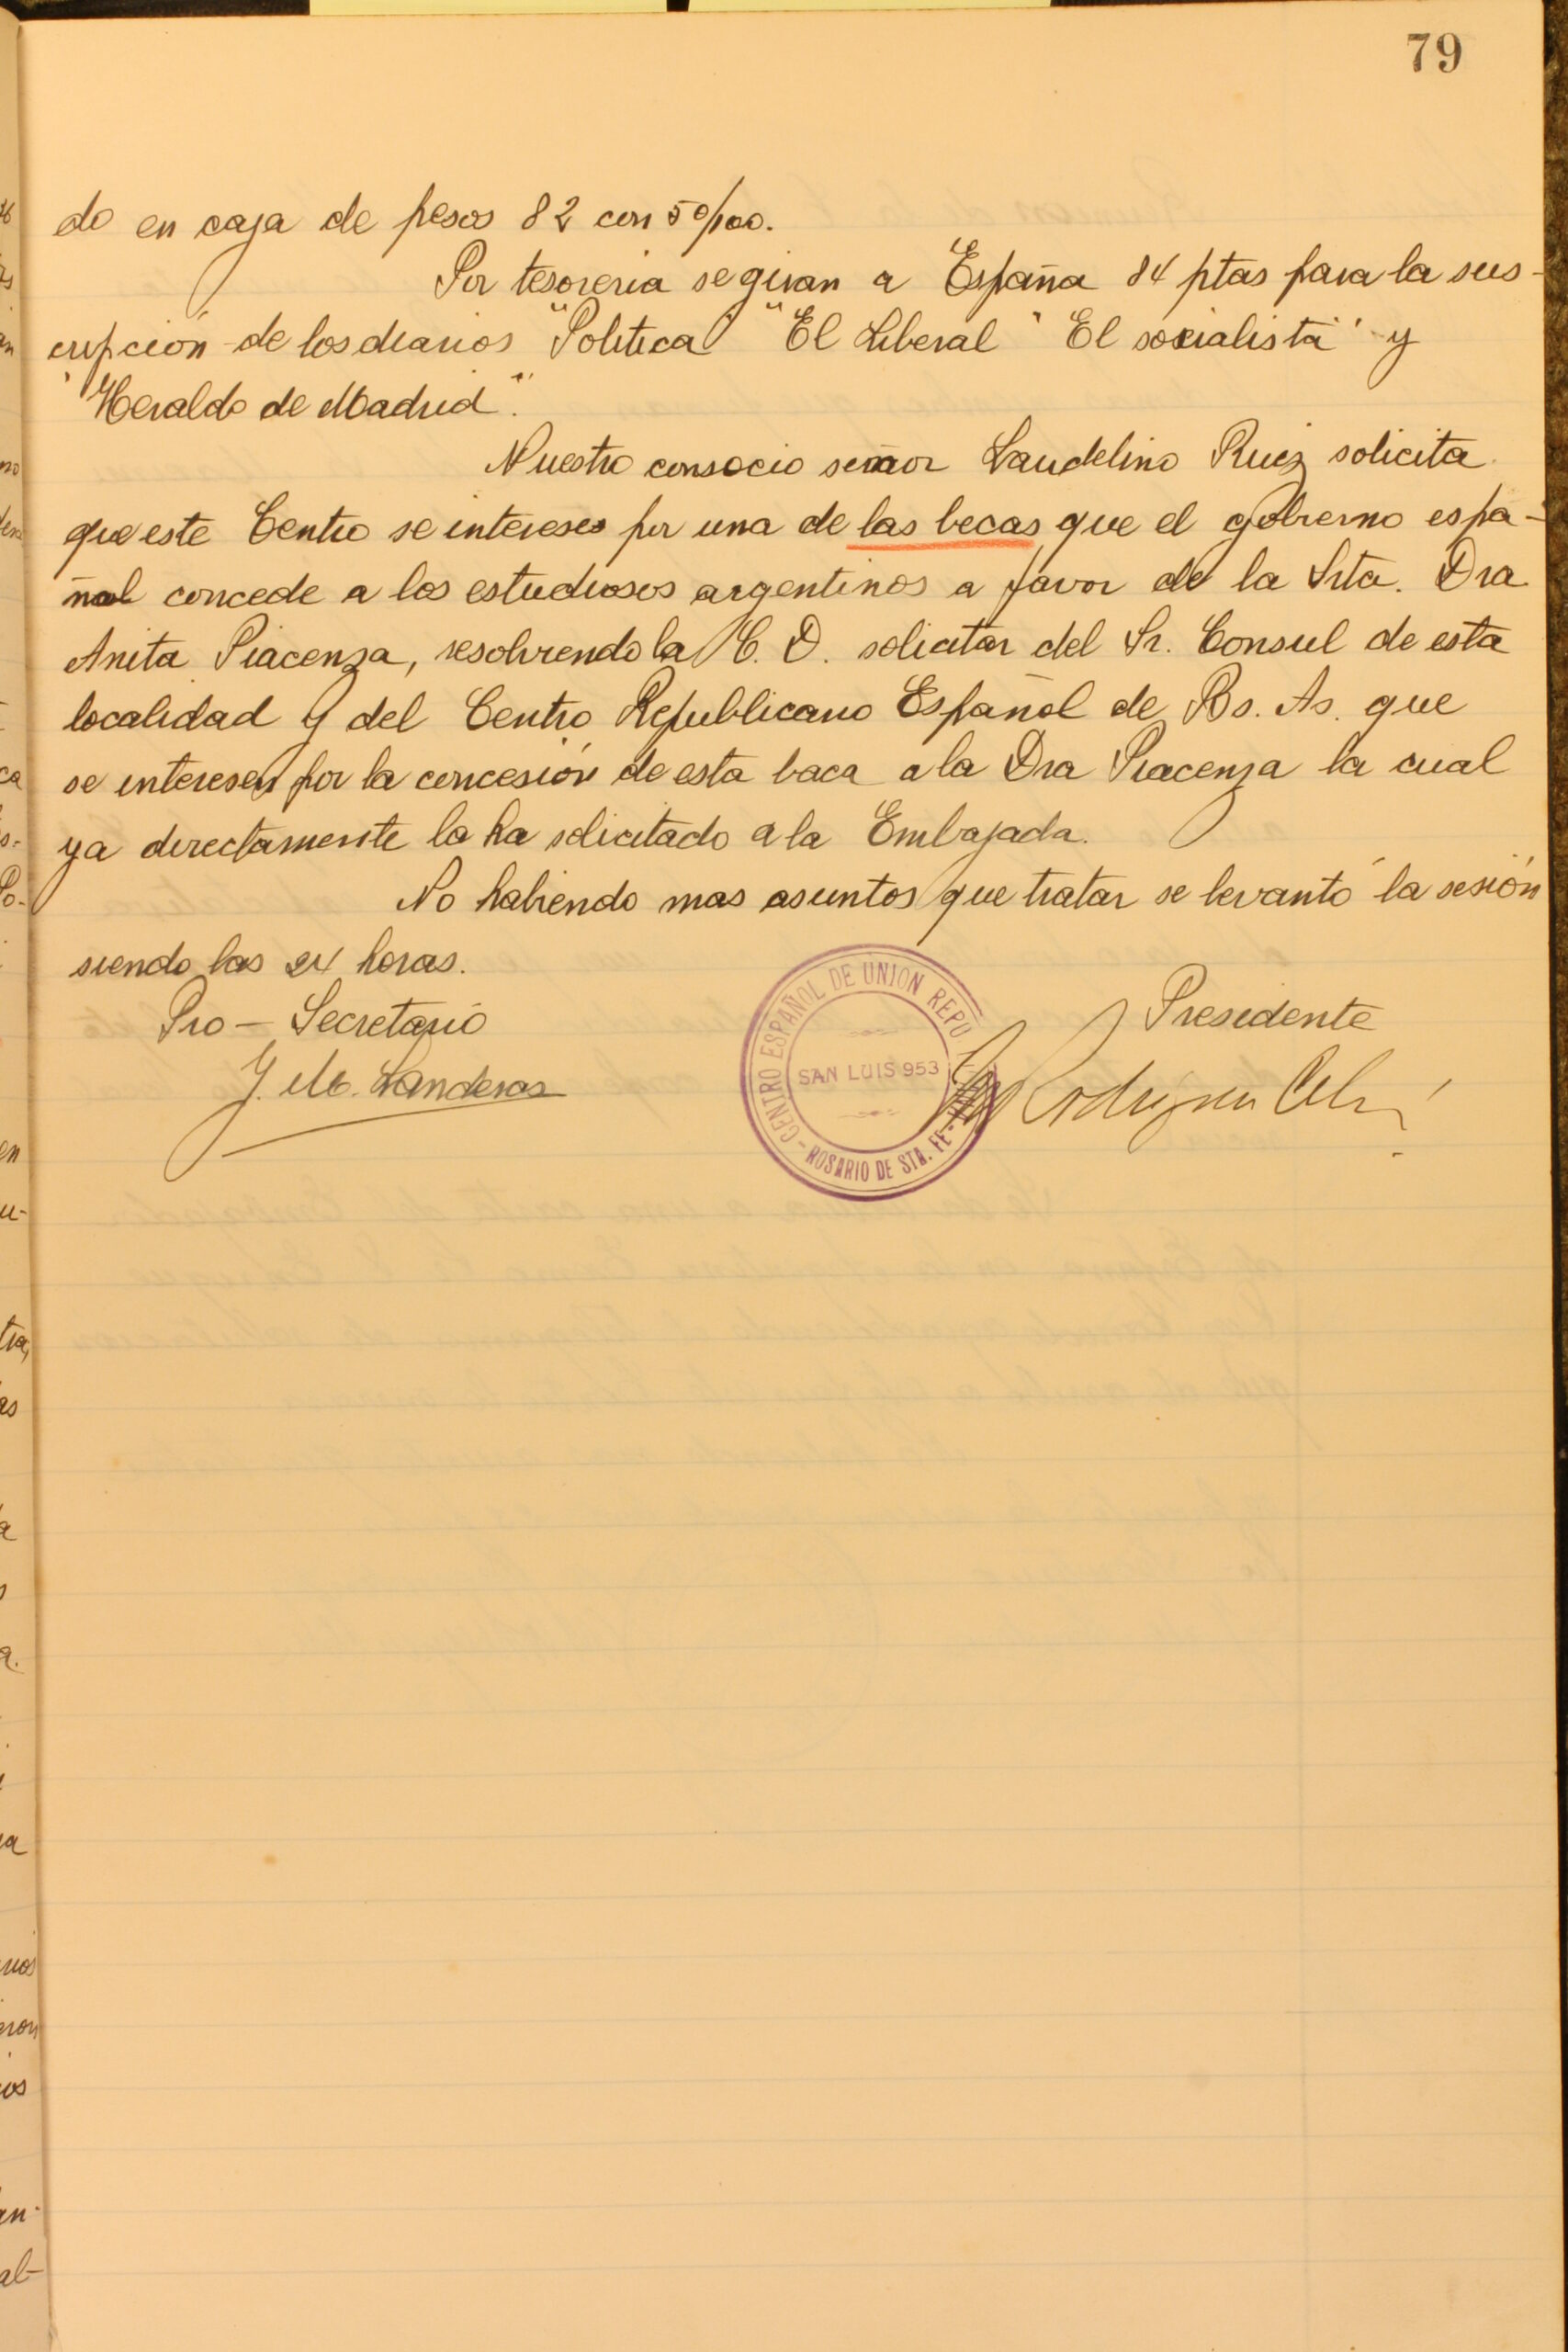 79
do en caja de pesos 82 con 50/100.
Por tesoreria se giran a España 84 ptas para la sus-
cripción de los diarios "Politica" "El Liberal" "El socialista" y
"Heraldo de Madrid".
Nuestro consocio señor Laudelino Ruiz solicita
que este Centro se interese por una de las becas que el gobierno espa-
ñol concede a los estudiosos argentinos a favor de la Srta. Dra
Anita Piacenza, resolviendo la C. D. solicitar del Sr. Consul de esta
localidad y del Centro Republicano Español de Bs. As. que
se interesen por la concesión de esta baca a la Dra Piacenza la cual
ya directamente la ha solicitado a la Embajada.
No habiendo mas asuntos que tratar se levantó la sesión
siendo las 24 horas.
Pro - Secretario
Presidente
J. M. Landeras
Rodriguez
CENTRO ESPAÑOL DE UNION REPU
SAN LUIS 953
ROSARIO DE STA. FE